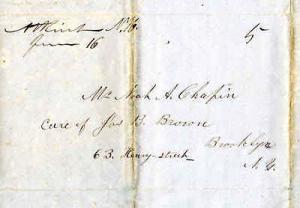 N.H.
16
5
Mr Noah A. Chapin
Care of Jas B. Brown
Brooklyn
63 Henry street
N.Y.